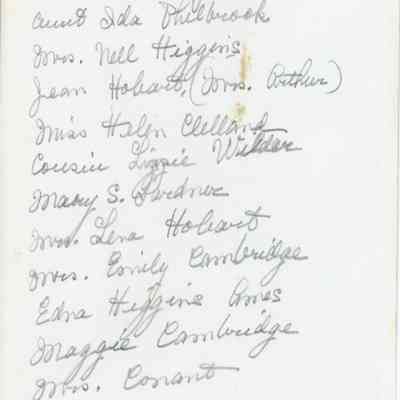 Aunt Ida Philbrook
Mrs. Nell Higgins
Jean Hobart, (Mrs. Arthur)
Miss Helen Clelland
Cousin Lizzie Wilder
Mary S. Gardner
Mrs. Lena Hobart
Mrs. Emily Cambridge
Edna Higgins Ames
Maggie Cambridge
Mrs. Conant